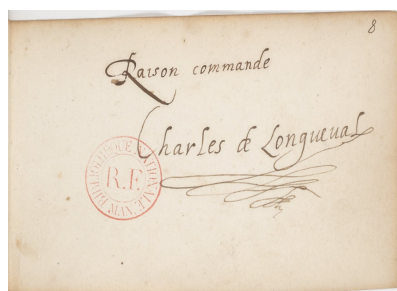 8
Raison commande
Charles de Longueval
BIBLIOTHEQUE NATIONALE MAN.
R.F.